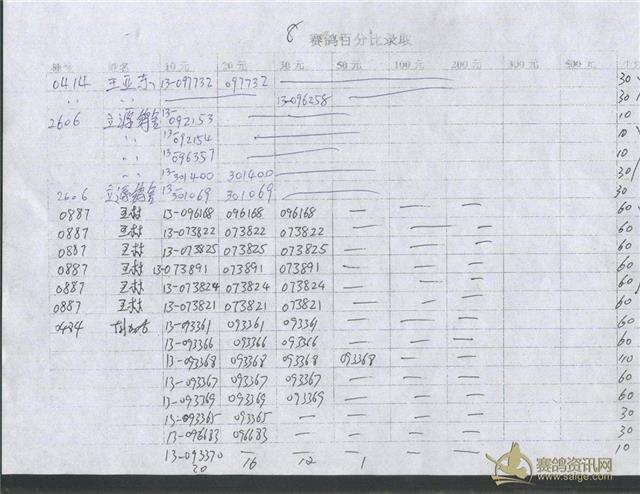 8 赛鸽百分比录取
棚号 姓名 10元 20元 30元 50元 100元 200元 300元 500元
0414 王亚东 13-097732 097732 — 30
〃 〃 — 13-096258 — 30
2606 立源鸽舍 13-092153 — 10
〃 〃 13-092154 — 10
〃 〃 13-096357 — 10
〃 〃 13-301400 301400 — 30
2606 立源鸽舍 13-301069 301069 — 30
0887 王林 13-096168 096168 096168 — — — 60
0887 王林 13-073822 073822 073822 — — — 60
0887 王林 13-073825 073825 073825 — — — 60
0887 王林 13-073891 073891 073891 — — — 60
0887 王林 13-073824 073824 073824 — — — 60
0887 王林 13-073821 073821 073821 — — — 60
0484 13-093361 093361 093361 — — — 60
13-093366 093366 093366 — — — 60
13-093368 093368 093368 093368 — — 110
13-093367 093367 093367 — — — 60
13-093369 093369 093369 — — — 60
13-093365 093365 — — — — 30
13-096683 096683 — — — — 30
13-093370 — — — — — 10
20 16 12 1
赛鸽资讯网
www.saige.com